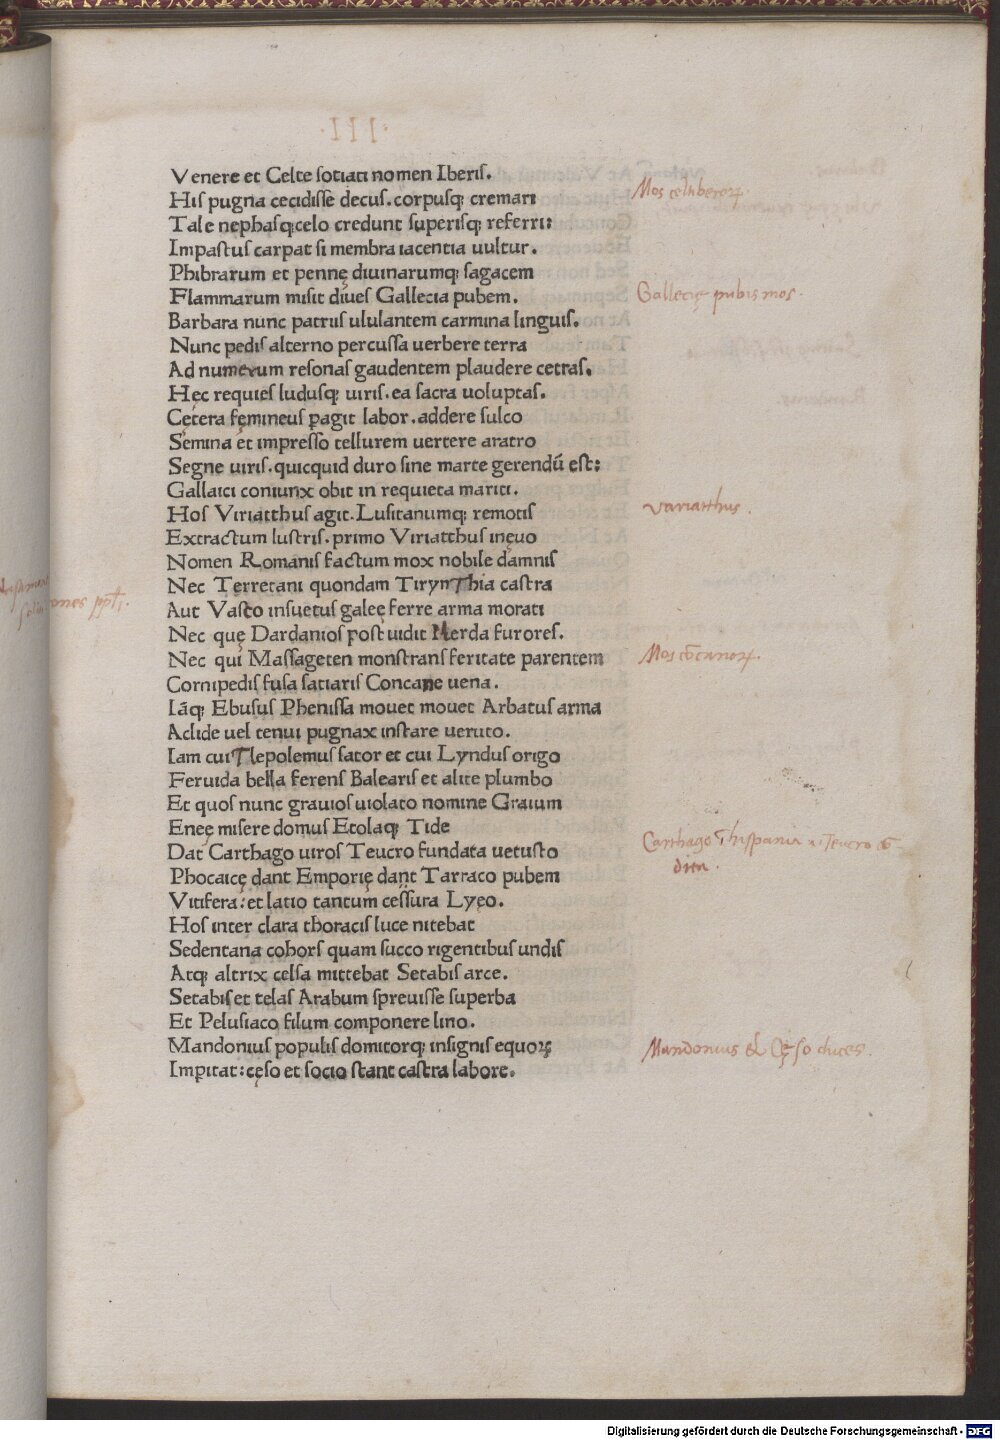 .III.
Venere et Celte sotiati nomen Iberis.
His pugna cecidisse decus. corpusq; cremari
Tale nephas q;celo credunt superisq; referri:
Impastus carpat si membra iacentia uultur.
Phibrarum et pennę diuinarumq; sagacem
Flammarum misit diues Gallecia pubem.
Barbara nunc patriis ululantem carmina linguis.
Nunc pedis alterno percussa uerbere terra
Ad numerum resonas gaudentem plaudere cetras.
Hęc requies ludusq; uiris. ea sacra uoluptas.
Cętera fęmineus pagit labor. addere sulco
Semina et impresso tellurem uertere aratro
Segne uiris. quicquid duro sine marte gerendū est:
Gallaici coniunx obit in requieta mariti.
Hos Viriatthus agit. Lusitanumq; remotis
Extractum lustris. primo Viriatthus inęuo
Nomen Romanis factum mox nobile damnis
Nec Terretani quondam Tirynthia castra
Aut Vasco insuetus galeę ferre arma morati
Nec quę Dardanios post uidit Ilerda furores.
Nec qui Massageten monstrans feritate parentem
Cornipedis fusa satiaris Concane uena.
Iāq; Ebusus Phenissa mouet mouet Arbatus arma
Aclide uel tenui pugnax instare ueruto.
Iam cui Tlepolemus sator et cui Lyndus origo
Feruida bella ferens Balearis et alite plumbo
Et quos nunc grauios uiolato nomine Graium
Eneę misere domus Etolaq; Tide
Dat Carthago uiros Teucro fundata uetusto
Phocaicę dant Emporię dant Tarraco pubem
Vitifera: et latio tantum cessura Lyęo.
Hos inter clara thoracis luce nitebat
Sedentana cohors quam succo rigentibus undis
Atq; altrix celsa mittebat Setabis arce.
Setabis et telas Arabum spreuisse superba
Et Pelusiaco filum componere lino.
Mandonius populis domitorq; insignis equoꝝ
Impitat: cęso et socio stant castra labore.
Mos celtiberoꝝ.
Gallecię pubis mos.
Variatthus.
Mos cōcanoꝝ.
Carthago ī hispania a Teucro cō
dita.
Mandonius & Cęso duces.
Digitalisierung gefördert durch die Deutsche Forschungsgemeinschaft - DFG